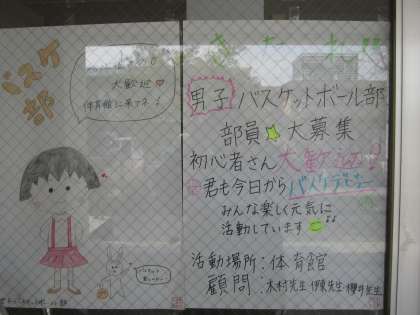 バスケ部
大歓迎♡
体育館に来てネ!
男子バスケットボール部
部員☆大募集
初心者さん大歓迎!
君も今日からバスケデビュー
みんな楽しく元気に
活動しています
活動場所:体育館
顧問:木村先生 伊東先生 櫻井先生